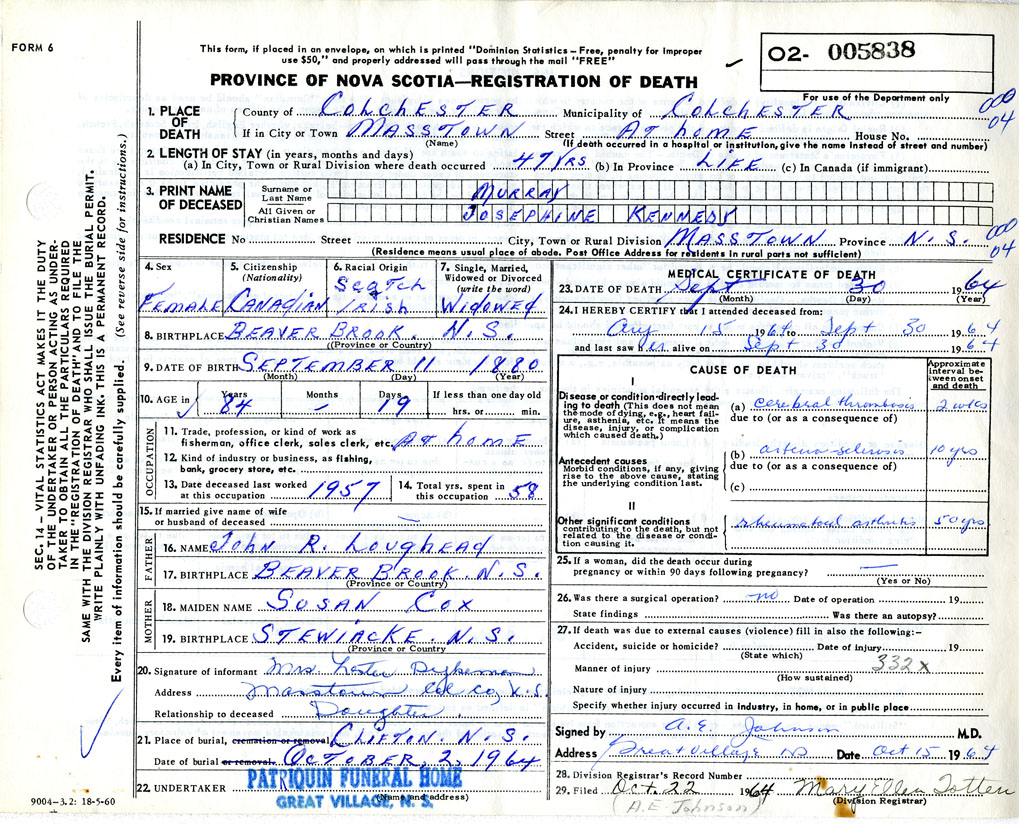 FORM 6
This form, if placed in an envelope, on which is printed "Dominion Statistics – Free, penalty for improper
use $50," and properly addressed will pass through the mail "FREE"
O2- 005838
PROVINCE OF NOVA SCOTIA—REGISTRATION OF DEATH
For use of the Department only
000
04
1. PLACE OF DEATH County of COLCHESTER Municipality of COLCHESTER
If in City or Town MASSTOWN Street AT HOME House No.
(Name) (If death occurred in a hospital or institution, give the name instead of street and number)
2. LENGTH OF STAY (in years, months and days)
(a) In City, Town or Rural Division where death occurred 47 YRS (b) In Province LIFE (c) In Canada (if immigrant)
3. PRINT NAME OF DECEASED Surname or Last Name MURRAY
All Given or Christian Names JOSEPHINE KENNEDY
RESIDENCE No Street City, Town or Rural Division MASSTOWN Province N.S.
000
04
(Residence means usual place of abode. Post Office Address for residents in rural parts not sufficient)
SEC. 14 – VITAL STATISTICS ACT MAKES IT THE DUTY
OF THE UNDERTAKER OR PERSON ACTING AS UNDER-
TAKER TO OBTAIN ALL THE PARTICULARS REQUIRED
IN THE "REGISTRATION OF DEATH" AND TO FILE THE
SAME WITH THE DIVISION REGISTRAR WHO SHALL ISSUE THE BURIAL PERMIT.
WRITE PLAINLY WITH UNFADING INK. THIS IS A PERMANENT RECORD.
Every item of information should be carefully supplied. (See reverse side for instructions.)
4. Sex FEMALE
5. Citizenship (Nationality) CANADIAN
6. Racial Origin Scotch Irish
7. Single, Married, Widowed or Divorced (write the word) WIDOWED
8. BIRTHPLACE BEAVER BROOK N.S.
((Province or Country)
9. DATE OF BIRTH SEPTEMBER 11 1880
(Month) (Day) (Year)
10. AGE in Years 84 Months – Days 19 If less than one day old
hrs. or min.
OCCUPATION
11. Trade, profession, or kind of work as
fisherman, office clerk, sales clerk, etc. AT HOME
12. Kind of industry or business, as fishing,
bank, grocery store, etc.
13. Date deceased last worked at this occupation 1957
14. Total yrs. spent in this occupation 58
15. If married give name of wife
or husband of deceased —
FATHER
16. NAME JOHN R. LOUGHEAD
17. BIRTHPLACE BEAVER BROOK. N.S.
(Province or Country)
MOTHER
18. MAIDEN NAME SUSAN COX
19. BIRTHPLACE STEWIACKE. N.S.
(Province or Country
20. Signature of informant Mrs. Lester Dykeman
Address Masstown Col Co, N.S.
Relationship to deceased Daughter.
21. Place of burial, cremation or removal CLIFTON. N.S.
Date of burial or removal. OCTOBER 2, 1964
22. UNDERTAKER PATRIQUIN FUNERAL HOME
GREAT VILLAGE, N. S.
(Name and address)
9004–3.2: 18-5-60
MEDICAL CERTIFICATE OF DEATH
23. DATE OF DEATH Sept 30 1964
(Month) (Day) (Year)
24. I HEREBY CERTIFY that I attended deceased from:
Aug 15 1964 to Sept 30 1964
and last saw her alive on Sept 30 1964
CAUSE OF DEATH
Approximate interval be-tween onset and death
I
Disease or condition directly lead-
ing to death (This does not mean
the mode of dying, e.g., heart fail-
ure, asthenia, etc. It means the
disease, injury, or complication
which caused death.)
(a) cerebral thrombosis 2 wks
due to (or as a consequence of)
Antecedent causes
Morbid conditions, if any, giving
rise to the above cause, stating
the underlying condition last.
(b) arterio-sclerosis 10 yrs
due to (or as a consequence of)
(c)
II
Other significant conditions
contributing to the death, but not
related to the disease or condi-
tion causing it.
rheumatoid arthritis 50 yrs
25. If a woman, did the death occur during
pregnancy or within 90 days following pregnancy? —
(Yes or No)
26. Was there a surgical operation? no Date of operation 19
State findings Was there an autopsy?
27. If death was due to external causes (violence) fill in also the following:–
Accident, suicide or homicide? Date of injury 19
(State which)
332x
Manner of injury
(How sustained)
Nature of injury
Specify whether injury occurred in industry, in home, or in public place
Signed by A.E. Johnson M.D.
Address Great Village NS Date Oct 15 1964
28. Division Registrar's Record Number
29. Filed Oct. 22 1964 Mary Ellen Totten
(A.E Johnson) (Division Registrar)